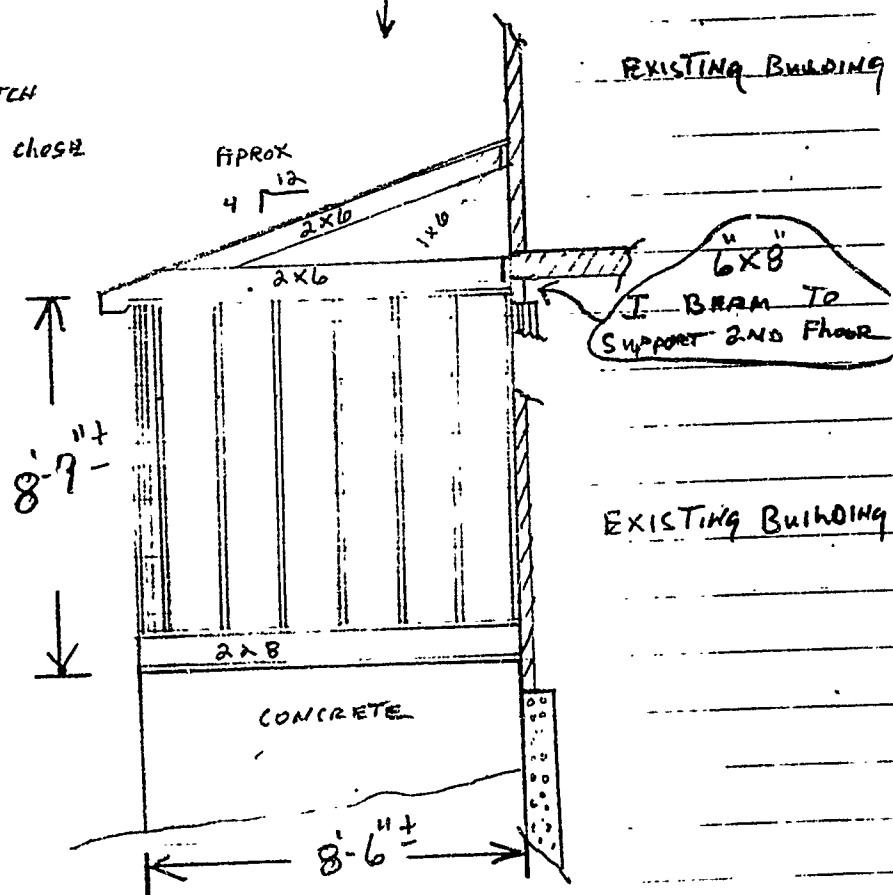 EXISTING BUILDING
TCH
chose
APROX
12
4
2x6
1x6
2x6
6"x8"
I BEAM TO
SUPPORT 2ND FLOOR
8'-7"±
EXISTING BUILDING
2x8
CONCRETE
8'-6"±